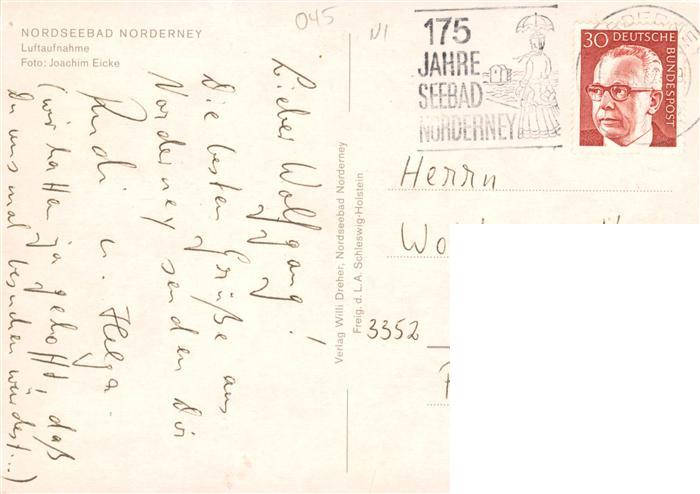 NORDSEEBAD NORDERNEY
Luftaufnahme
Foto: Joachim Eicke
045
Lieber Wolfgang!
Die besten Grüße aus
Norderney senden Dir
Rudi u. Helga.
(wir hatten ja gehofft, daß
Du uns mal besuchen würdest...)
Verlag Willi Dreher, Nordseebad Norderney
Freig. d. L. A. Schleswig-Holstein
175
JAHRE
SEEBAD
NORDERNEY
30 DEUTSCHE BUNDESPOST
Herrn
3352